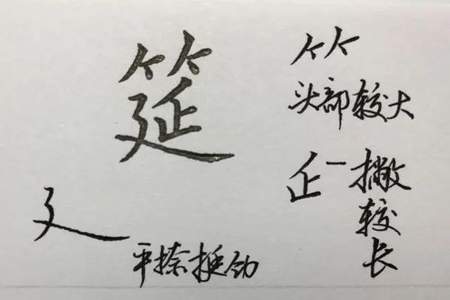 筵
⺮
头部较大
一撇较长
廴
平捺挺劲